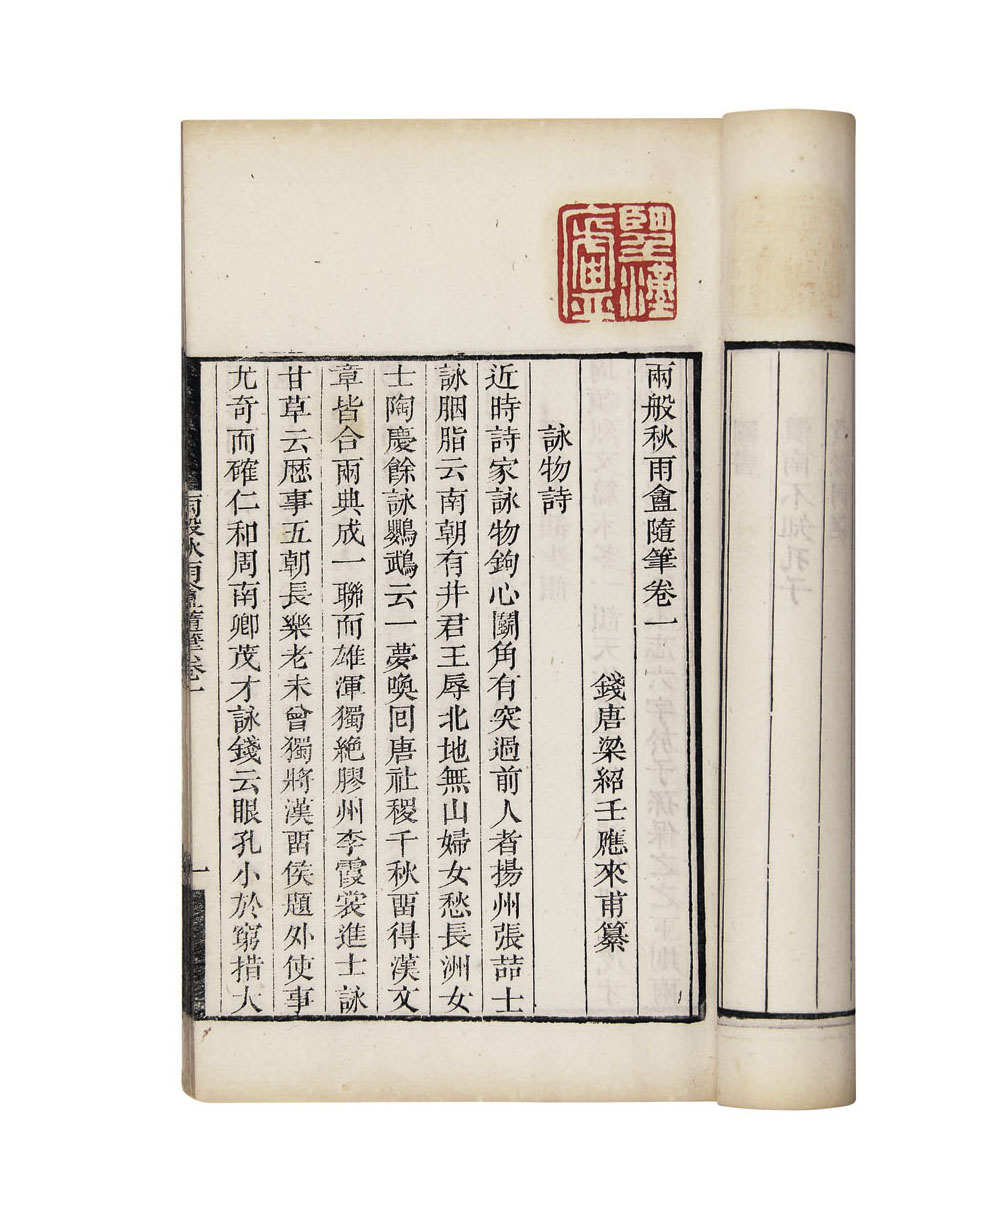 兩般秋雨盦隨筆卷一
錢唐梁紹壬應來甫纂
詠物詩
近時詩家詠物鉤心鬬角有突過前人者揚州張喆士
詠胭脂云南朝有井君王辱北地無山婦女愁長洲女
士陶慶餘詠鸚鵡云一夢喚回唐社稷千秋畱得漢文
章皆合兩典成一聯而雄渾獨絶膠州李霞裳進士詠
甘草云歷事五朝長樂老未曾獨將漢畱侯題外使事
尤奇而確仁和周南卿茂才詠錢云眼孔小於窮措大
兩般秋雨盦隨筆卷一
一